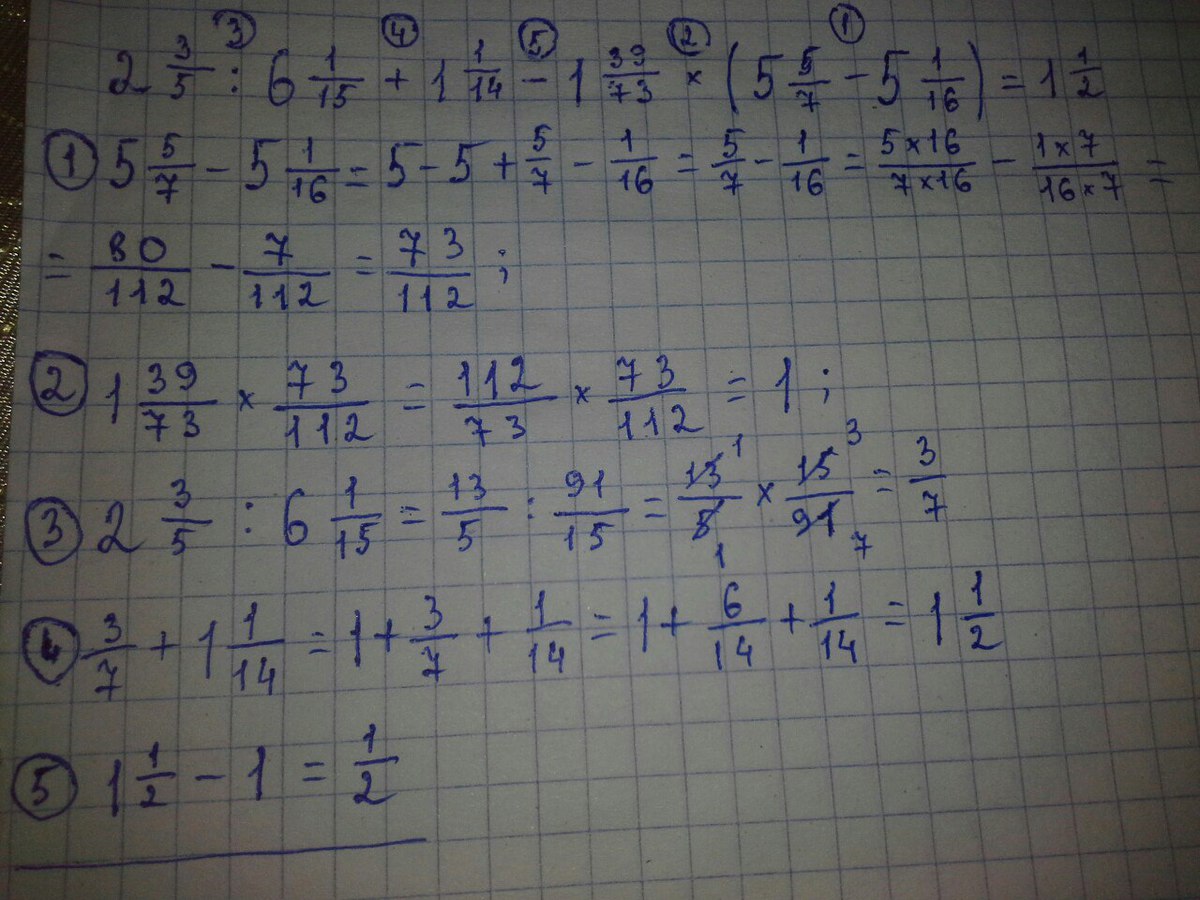 ③ ④ ⑤ ② ①
2 3/5 : 6 1/15 + 1 1/14 - 1 39/73 × (5 5/7 - 5 1/16) = 1 1/2
① 5 5/7 - 5 1/16 = 5 - 5 + 5/7 - 1/16 = 5/7 - 1/16 = 5×16/7×16 - 1×7/16×7 =
= 80/112 - 7/112 = 73/112 ;
② 1 39/73 × 73/112 = 112/73 × 73/112 = 1 ;
③ 2 3/5 : 6 1/15 = 13/5 : 91/15 = 13 1/5 1 × 15 3/91 7 = 3/7
④ 3/7 + 1 1/14 = 1 + 3/7 + 1/14 = 1 + 6/14 + 1/14 = 1 1/2
⑤ 1 1/2 - 1 = 1/2